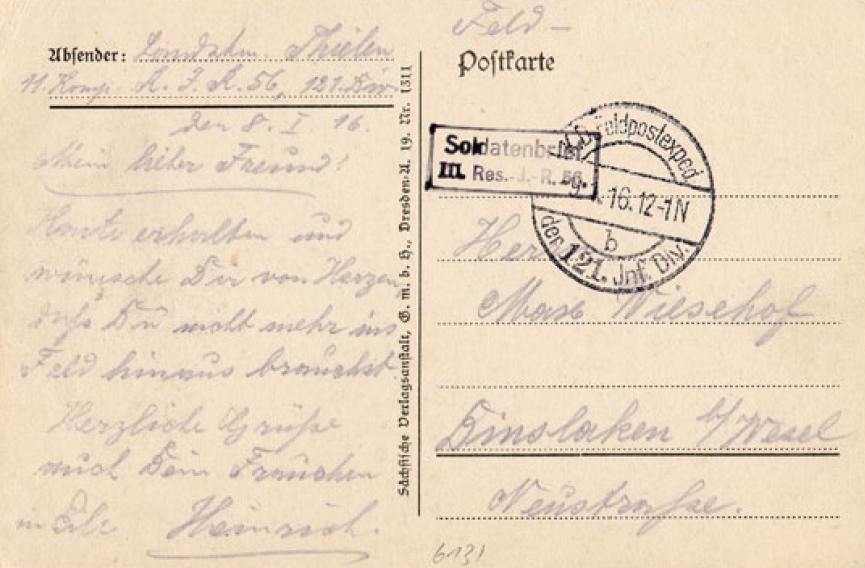 Feld-
Postkarte
Absender: Landstm. Thielen
11. Komp. R. J. R. 56, 121. Div.
den 8. I. 16.
Mein lieber Freund!
Karte erhalten und
wünsche Dir von Herzen
daß Du nicht mehr ins
Feld hinaus brauchst
Herzliche Grüße
auch Dein Frauchen
in Eile Heinrich.
Sächsische Verlagsanstalt, G. m. b. H., Dresden-A. 19. Nr. 1311
Soldatenbrief
III. Res.-J.-R. 56.
K.D. Feldpostexped.
16. 12-1N
b
der 121. Jnf. Div.
Herrn
Max Wiesehof
Dinslaken b/Wesel
Neustraße.
6131